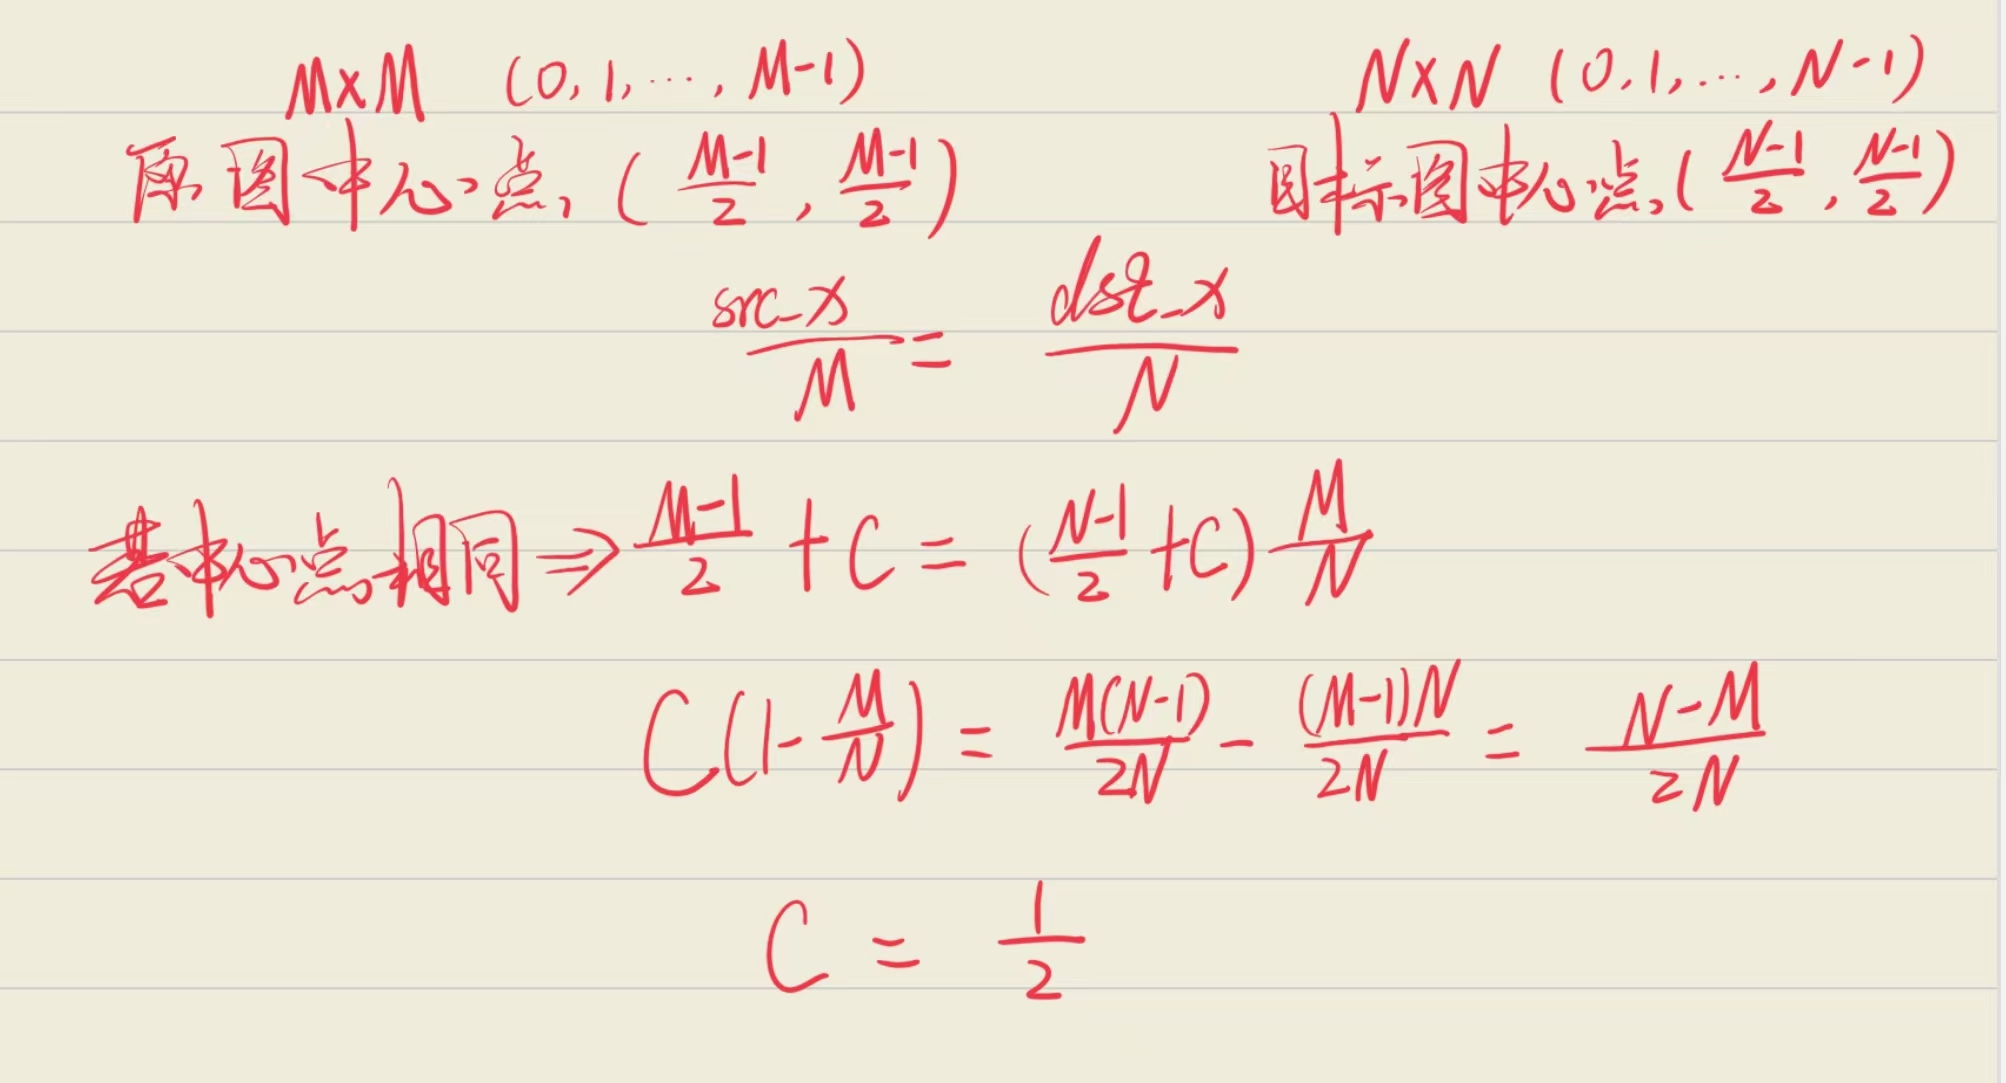 M×M (0,1,…,M-1) N×N (0,1,…,N-1)
原图中心点,(\frac{M-1}{2},\frac{M-1}{2}) 目标图中心点,(\frac{N-1}{2},\frac{N-1}{2})
\frac{src_x}{M}=\frac{dst_x}{N}
若中心点相同⇒\frac{M-1}{2}+C=(\frac{N-1}{2}+C)\frac{M}{N}
C(1-\frac{M}{N})=\frac{M(N-1)}{2N}-\frac{(M-1)N}{2N}=\frac{N-M}{2N}
C=\frac{1}{2}